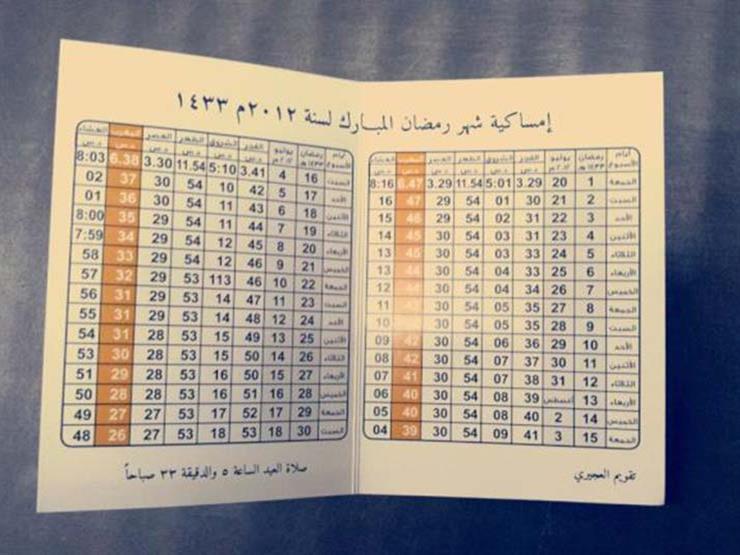 إمساكية شهر رمضان المبارك لسنة ٢٠١٢م ١٤٣٣
أيام الأسبوع رمضان ١٤٣٣هـ يوليو ٢٠١٢م الفجر د.س الشروق د.س الظهر د.س العصر د.س المغرب د.س العشاء د.س
الجمعة 1 20 3.29 5:01 11.54 3.29 6.47 8:16
السبت 2 21 30 01 54 29 47 16
الأحد 3 22 31 02 54 29 46 15
الأثنين 4 23 31 03 54 30 45 14
الثلاثاء 5 24 32 03 54 30 45 13
الأربعاء 6 25 33 04 54 30 44 13
الخميس 7 26 34 04 54 30 44 12
الجمعة 8 27 35 05 54 30 11
السبت 9 28 35 05 54 30 10
الأحد 10 29 36 06 54 30 42 09
الأثنين 11 30 37 07 54 30 42 08
الثلاثاء 12 31 38 07 54 30 41 07
الأربعاء 13 أغسطس 39 08 54 30 40 06
الخميس 14 2 40 08 54 30 40 05
الجمعة 15 3 41 09 54 30 39 04
تقويم العجيري
أيام الأسبوع رمضان ١٤٣٣هـ يوليو ٢٠١٢م الفجر د.س الشروق د.س الظهر د.س العصر د.س المغرب د.س العشاء د.س
السبت 16 4 3.41 5:10 11.54 3.30 6.38 8:03
الأحد 17 5 42 10 54 30 37 02
الأثنين 18 6 43 11 54 30 36 01
الثلاثاء 19 7 44 11 54 29 35 8:00
الأربعاء 20 8 45 12 54 29 34 7:59
الخميس 21 9 46 12 54 29 33 58
الجمعة 22 10 46 113 53 29 32 57
السبت 23 11 47 14 53 29 31 56
الأحد 24 12 48 14 53 29 31 55
الأثنين 25 13 49 15 53 28 31 54
الثلاثاء 26 14 50 15 53 28 30 53
الأربعاء 27 15 50 16 53 28 29 51
الخميس 28 16 51 16 53 28 28 50
الجمعة 29 17 52 17 53 27 27 49
السبت 30 18 53 18 53 27 26 48
صلاة العيد الساعة ٥ والدقيقة ٣٣ صباحاً